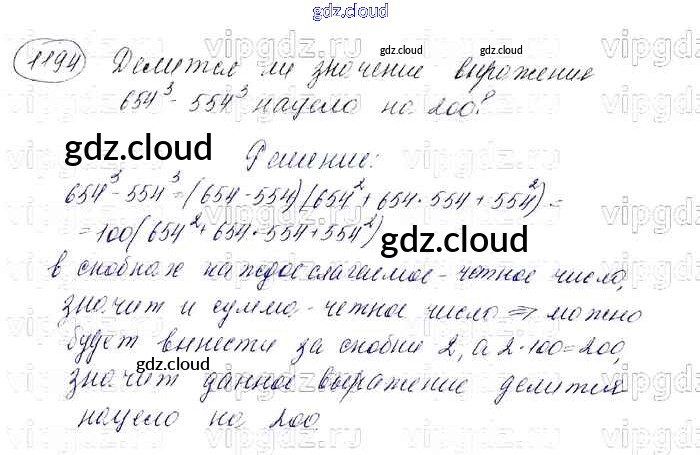 gdz.cloud
1194 Делится ли значение выражения
654³ - 554³ нацело на 200?
gdz.cloud
gdz.cloud
gdz.cloud
Решение:
654³ - 554³ = (654 - 554)(654² + 654 · 554 + 554²) =
= 100(654² + 654 · 554 + 554²)
gdz.cloud
в скобках каждое слагаемое - четное число,
значит и сумма - четное число ⇒ можно
будет вынести за скобки 2, а 2 · 100 = 200,
gdz.cloud
значит данное выражение делится
gdz.cloud
нацело на 200.